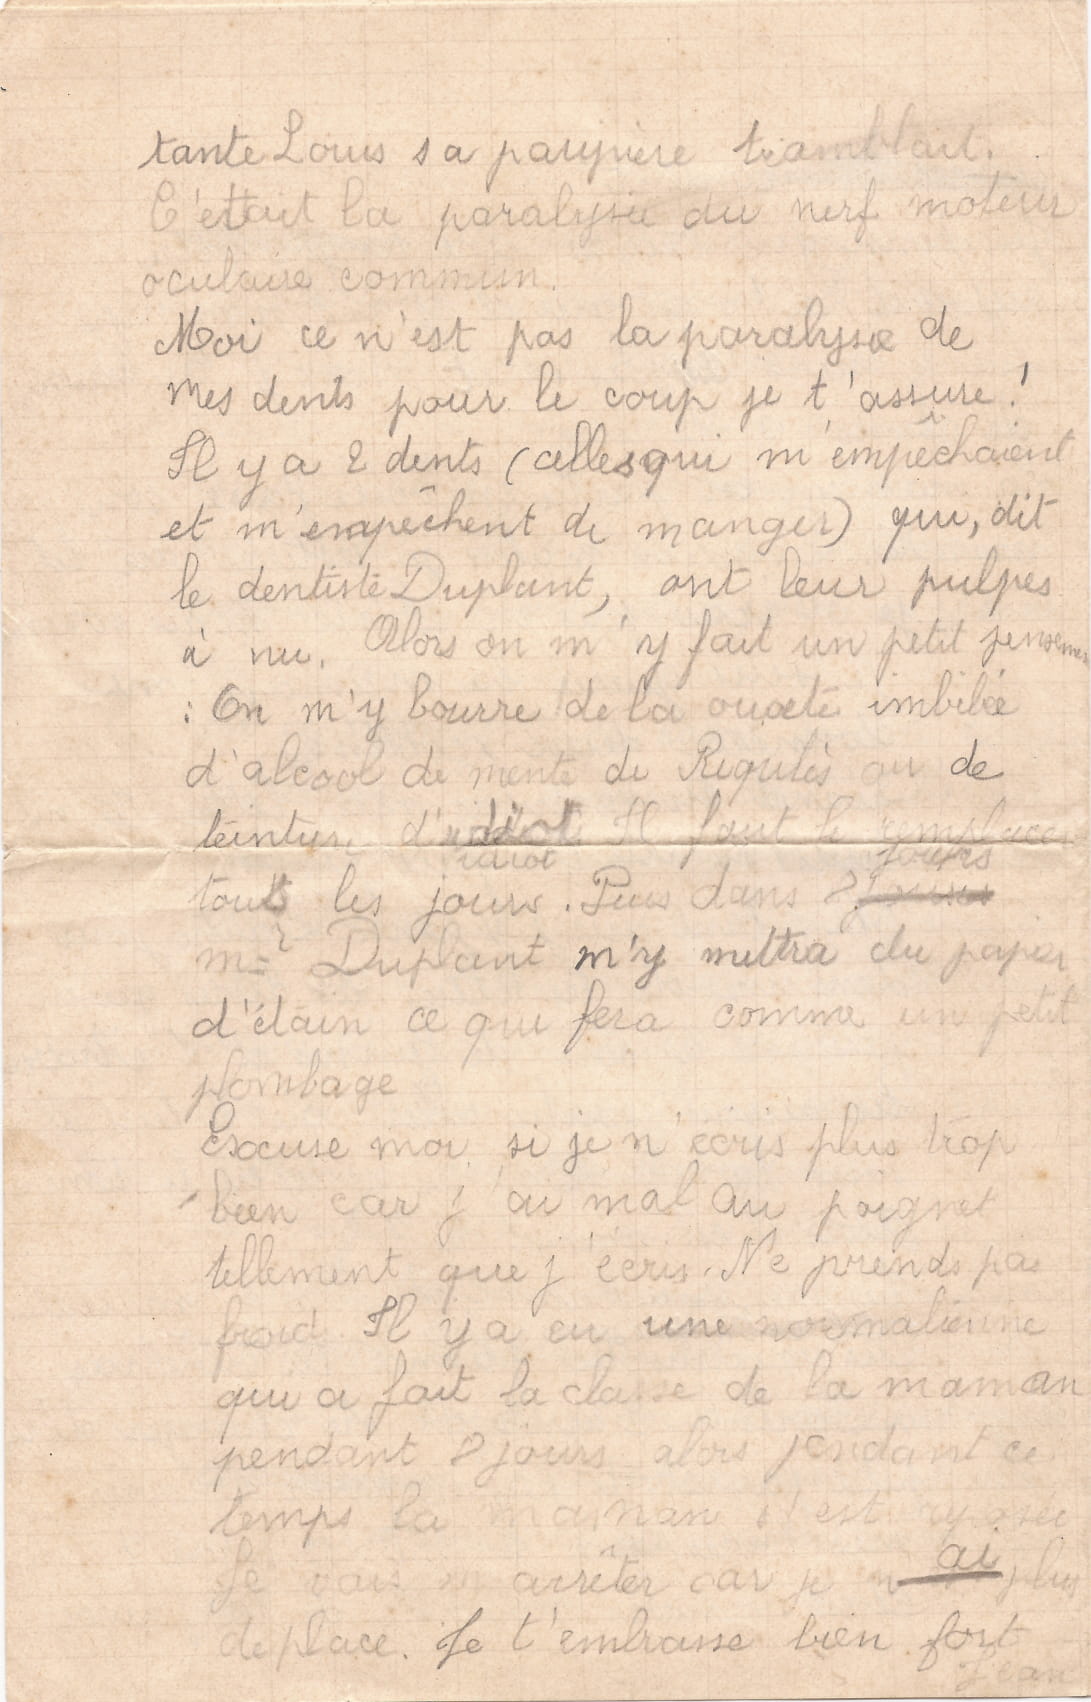 tante Louis sa paupière tramblait.
C'ettait la paralysie du nerf moteur
oculaire commun.
Moi ce n'est pas la paralyse de
mes dents pour le coup je t'assure !
Il y a 2 dents (celles qui m'empêchaient
et m'empêchent de manger) qui, dit
le dentiste Duplant, ont leur pulpes
à nu. Alors on m'y fait un petit pensemen
: On m'y bourre de la ouate imbibée
d'alcool de mente de Ricqulès ou de
teinture d' Il faut le remplacer
idiot jours
tous les jours. Puis dans 8
mr Duplant m'y mettra du papier
d'étain ce qui fera comme un petit
plombage
Excuse moi si je n'écris plus trop
bien car j'ai mal au poignet
tellement que j'écris. Ne prends pas
froid. Il y a eu une normalienne
qui a fait la classe de la maman
pendant 8 jours alors pendant ce
temps la maman s'est reposée
ai
Je vais m'arrêter car je n' plus
de place. Je t'embrasse bien fort
Jean